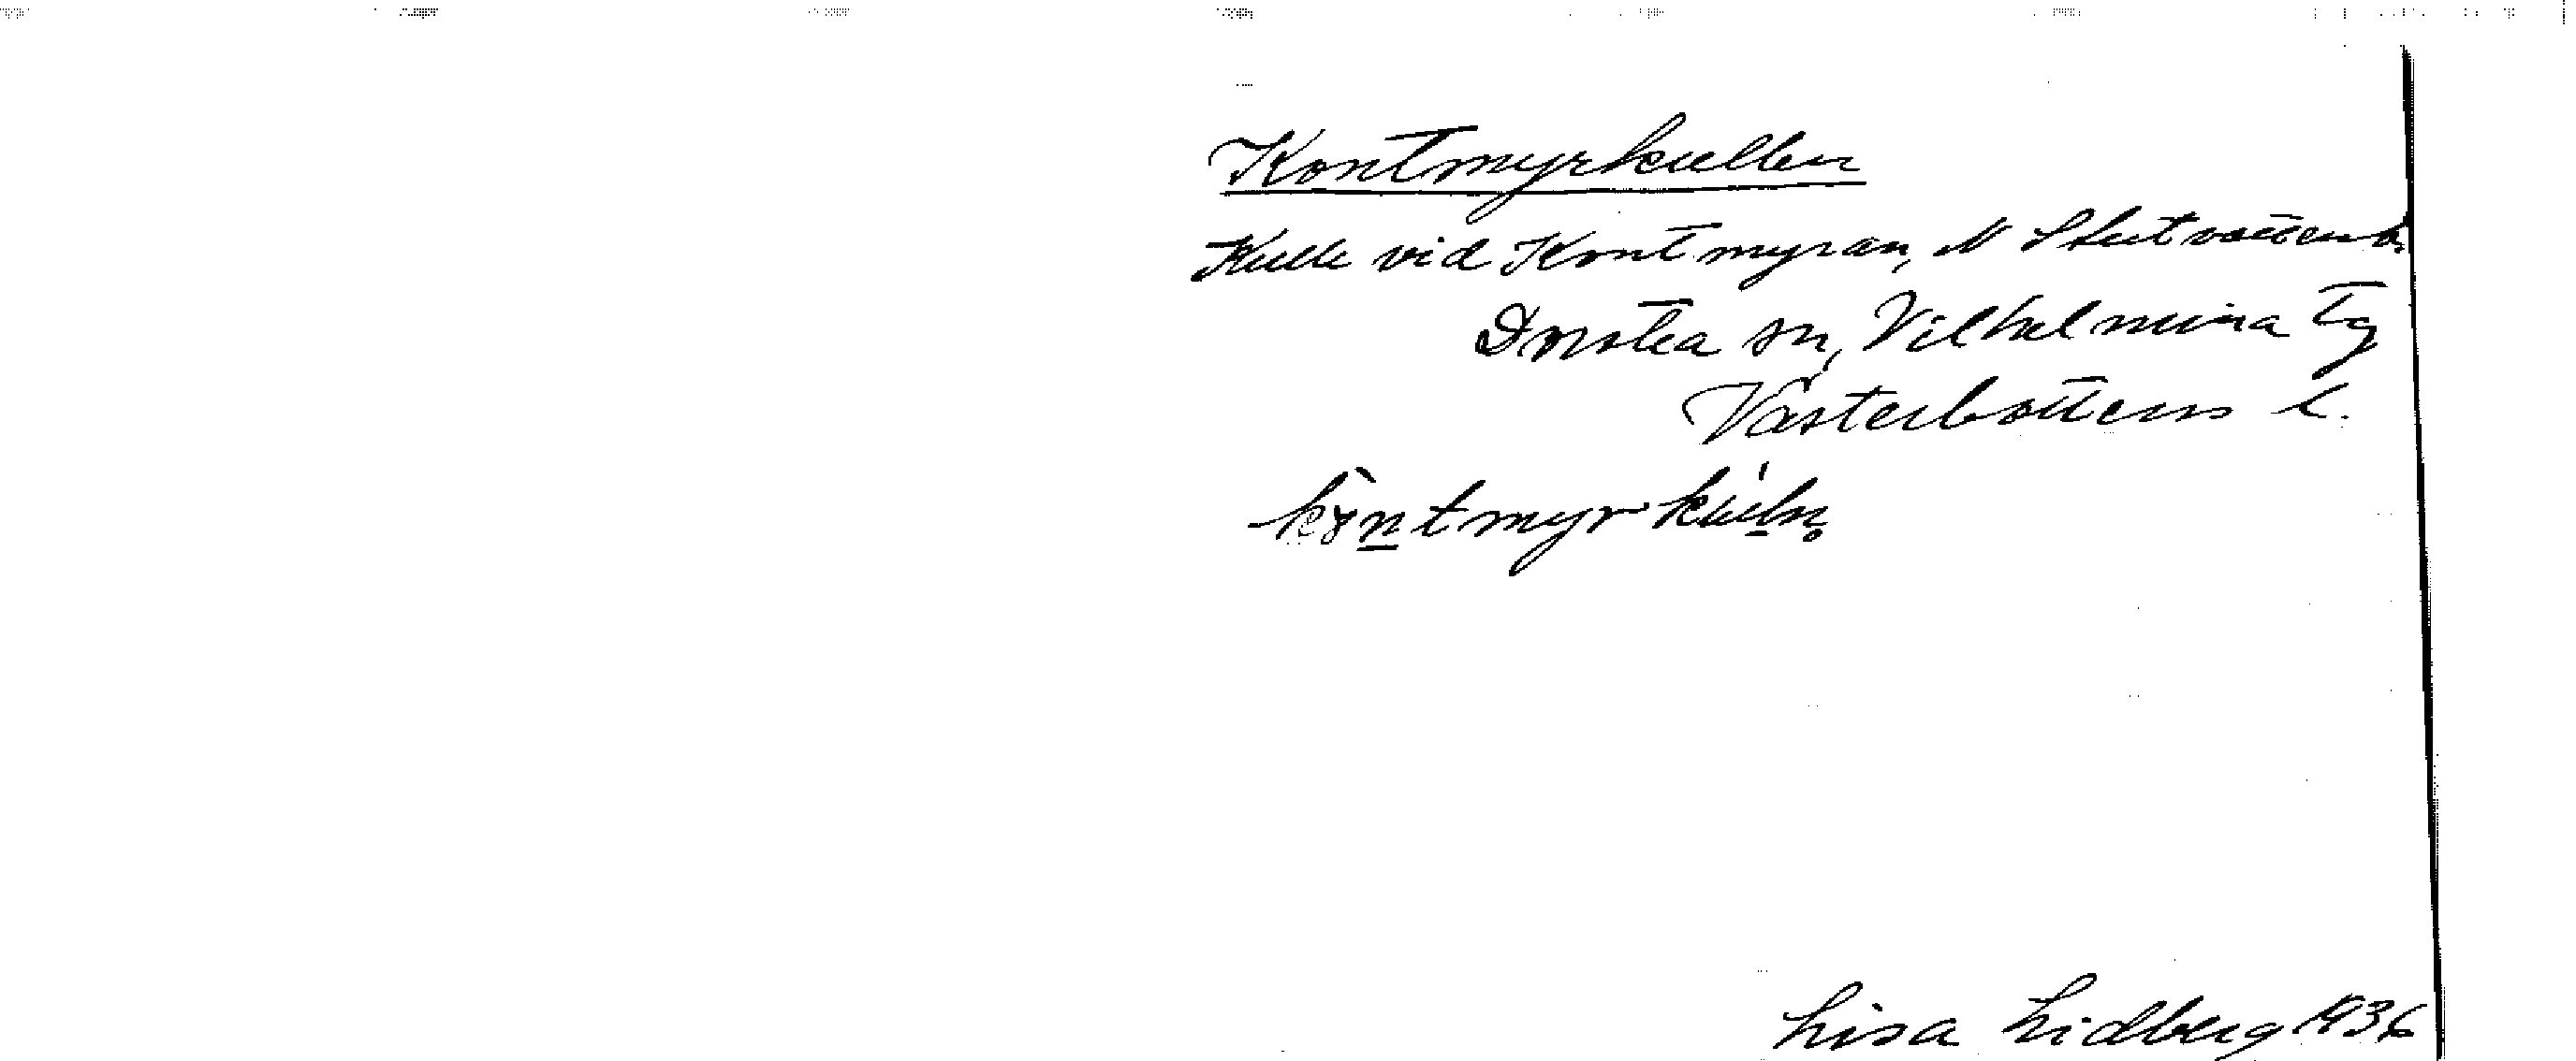 Kontmyrkullen
Kulle vid Kontmyran, N Stutvattenb.
Dorotea sn, Vilhelmina tg
Västerbottens l.
kòntmyrkúln̥
Lisa Lidberg 1936